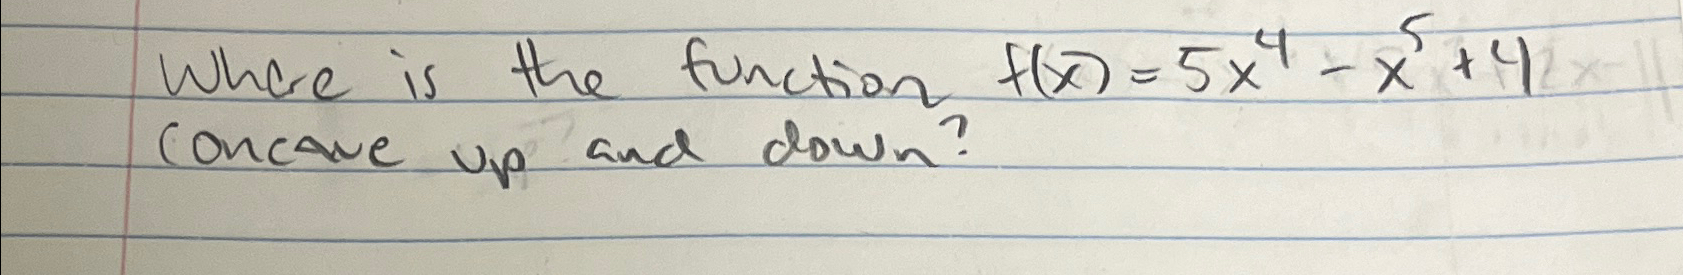 Where is the function f(x) = 5x⁴ - x⁵ + 4
concave up and down?